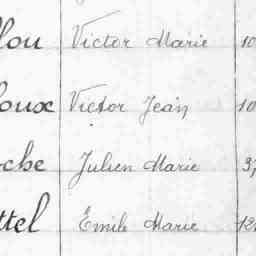 llou Victor Marie 10
oux Victor Jean 10
oche Julien Marie 37
ttel Emile Marie 12